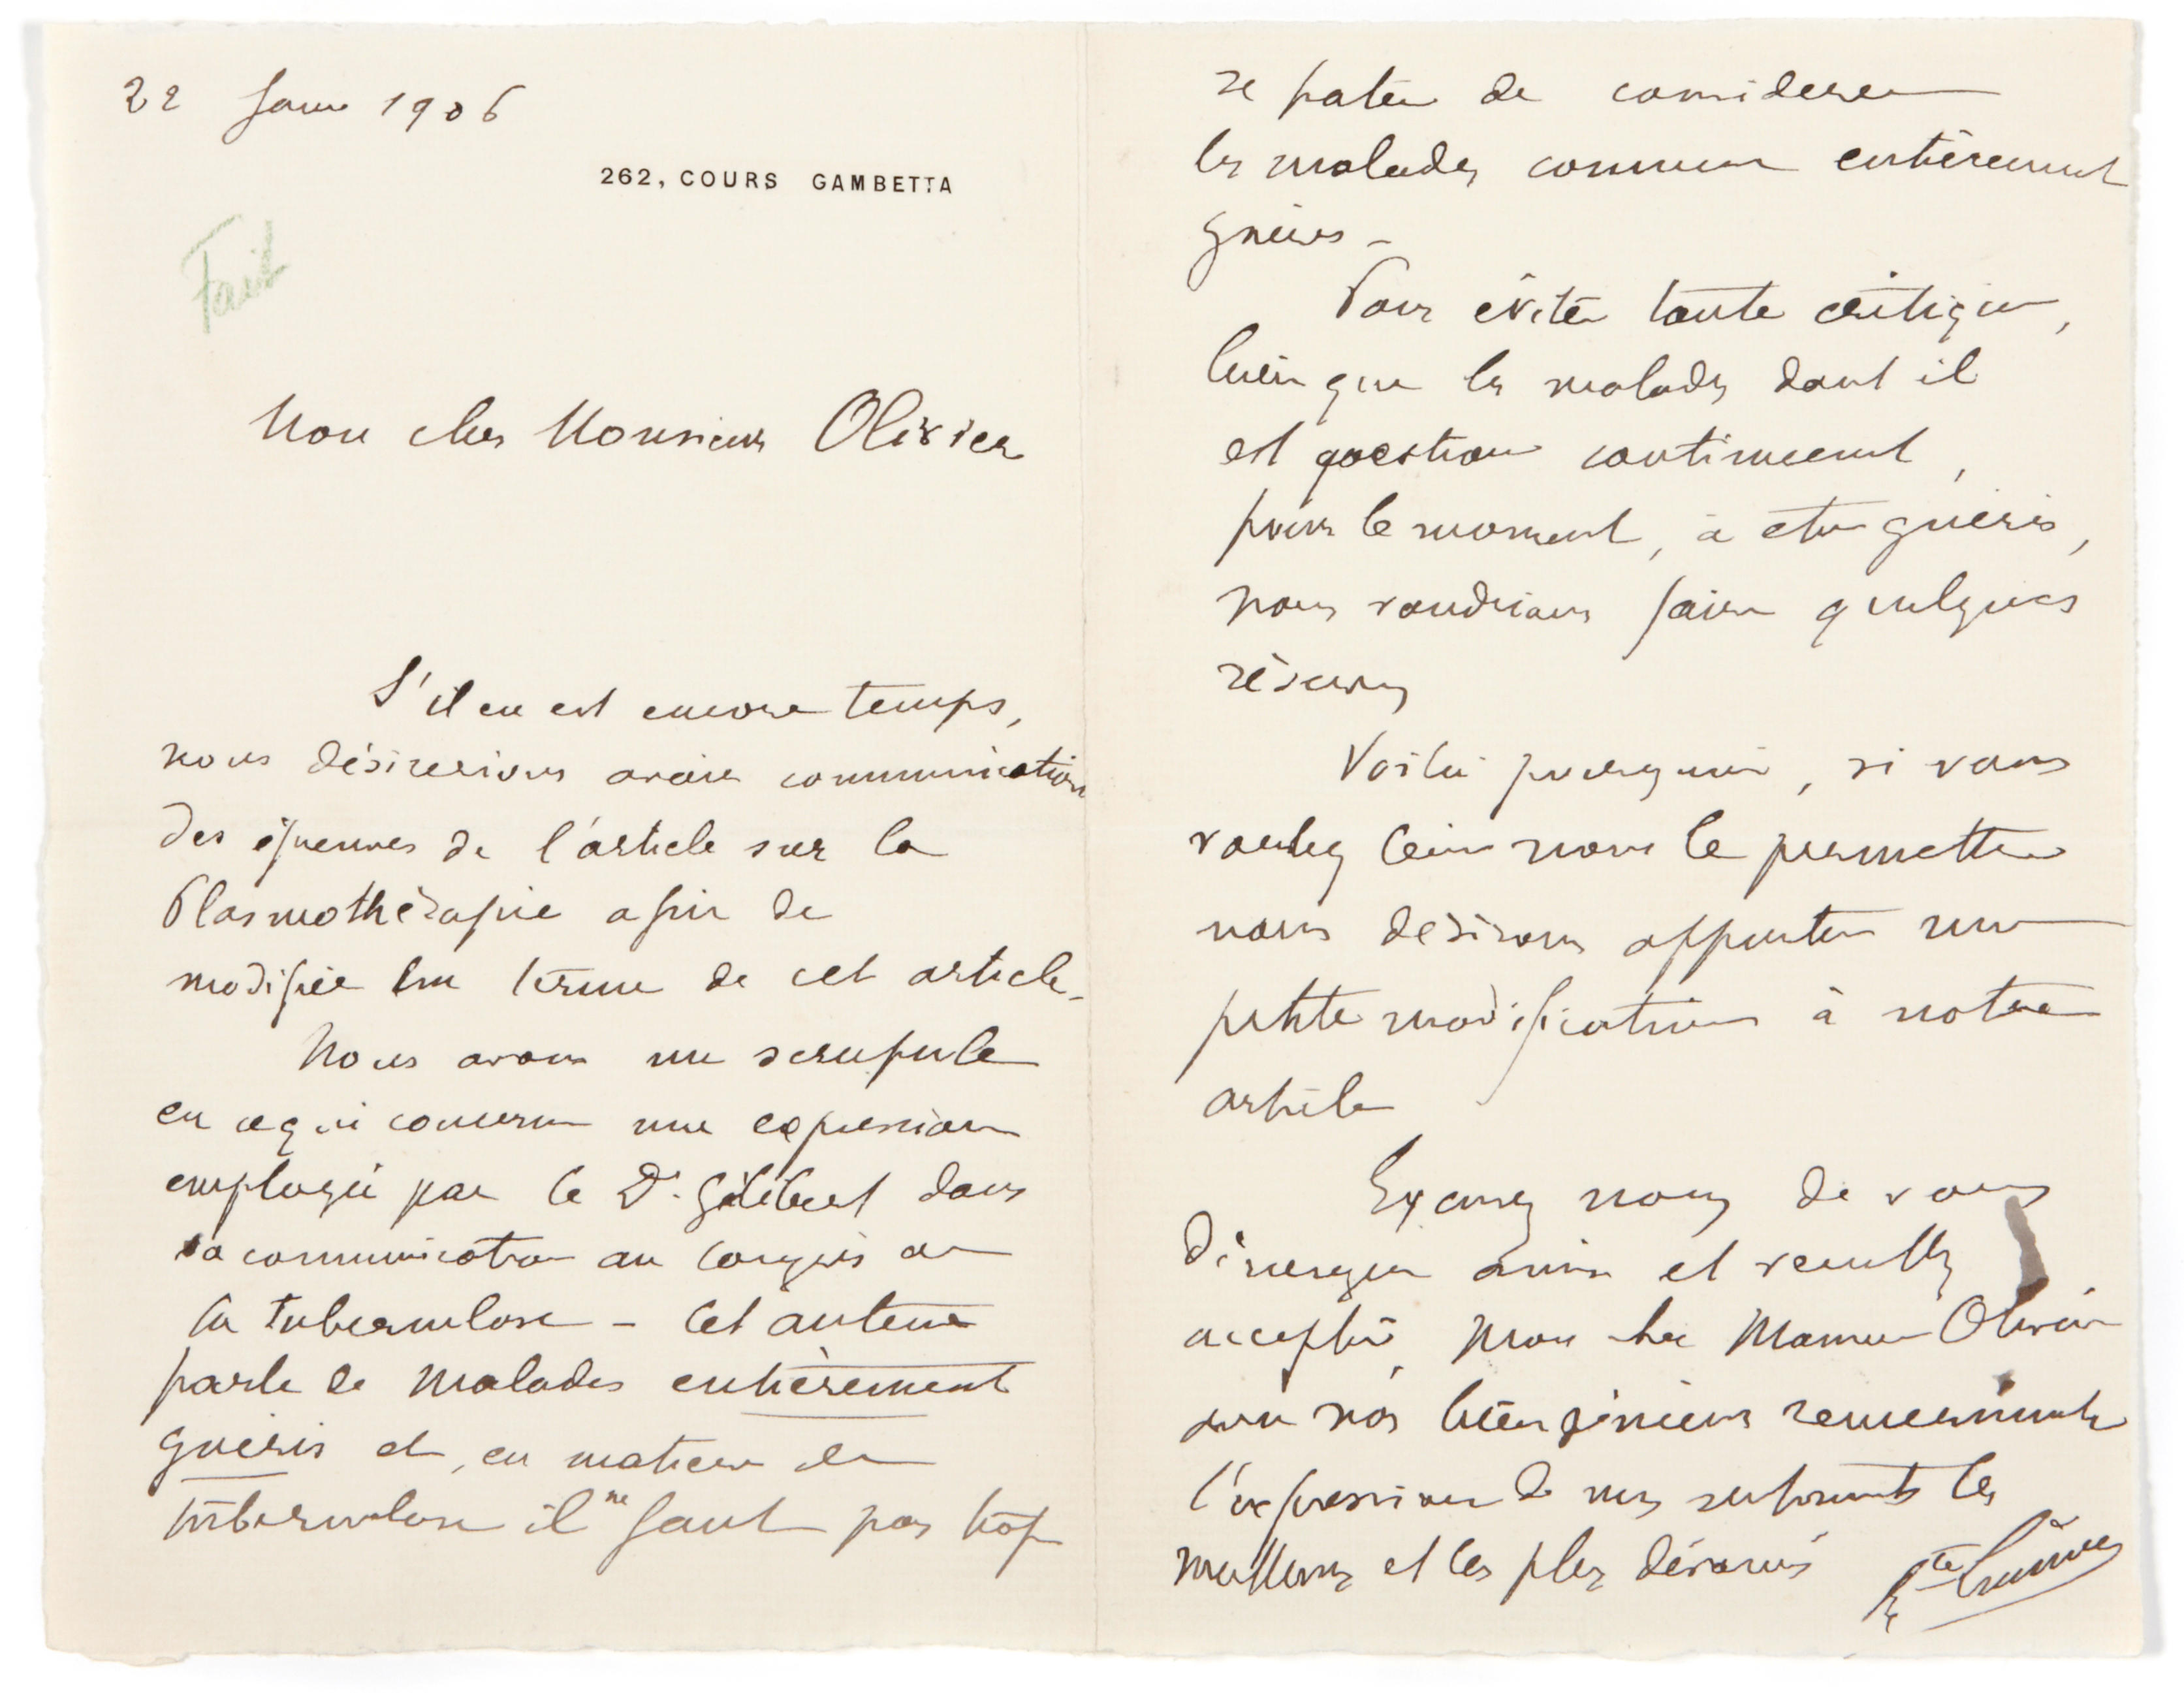 22 Janv 1906
262, COURS GAMBETTA
Fait
Mon cher Monsieur Olivier
S'il en est encore temps,
nous désirerions avoir communication
des épreuves de l'article sur la
Plasmothérapie afin de
modifier un terme de cet article.
Nous avons un scrupule
en ce qui concerne une expression
employée par le Dr. Gilibert dans
sa communication au Congrès de
la tuberculose - Cet auteur
parle de malades entièrement
guéris et, en matière de
tuberculose il ne faut pas trop
se hater de considerer
les malades comme entièrement
guéris -
Pour éviter toute critique,
bien que les malades dont il
est question continuent,
pour le moment, à être guéris,
nous voudrions faire quelques
réserves
Voilà pourquoi, si vous
voulez bien nous le permettre
nous désirons apporter une
petite modification à notre
article
Excusez nous de vous
déranger ainsi et veuillez
accepter, Mon cher Monsieur Olivier
avec nos bien sincères remerciements
l'expression de nos sentiments les
meilleurs et les plus dévoués